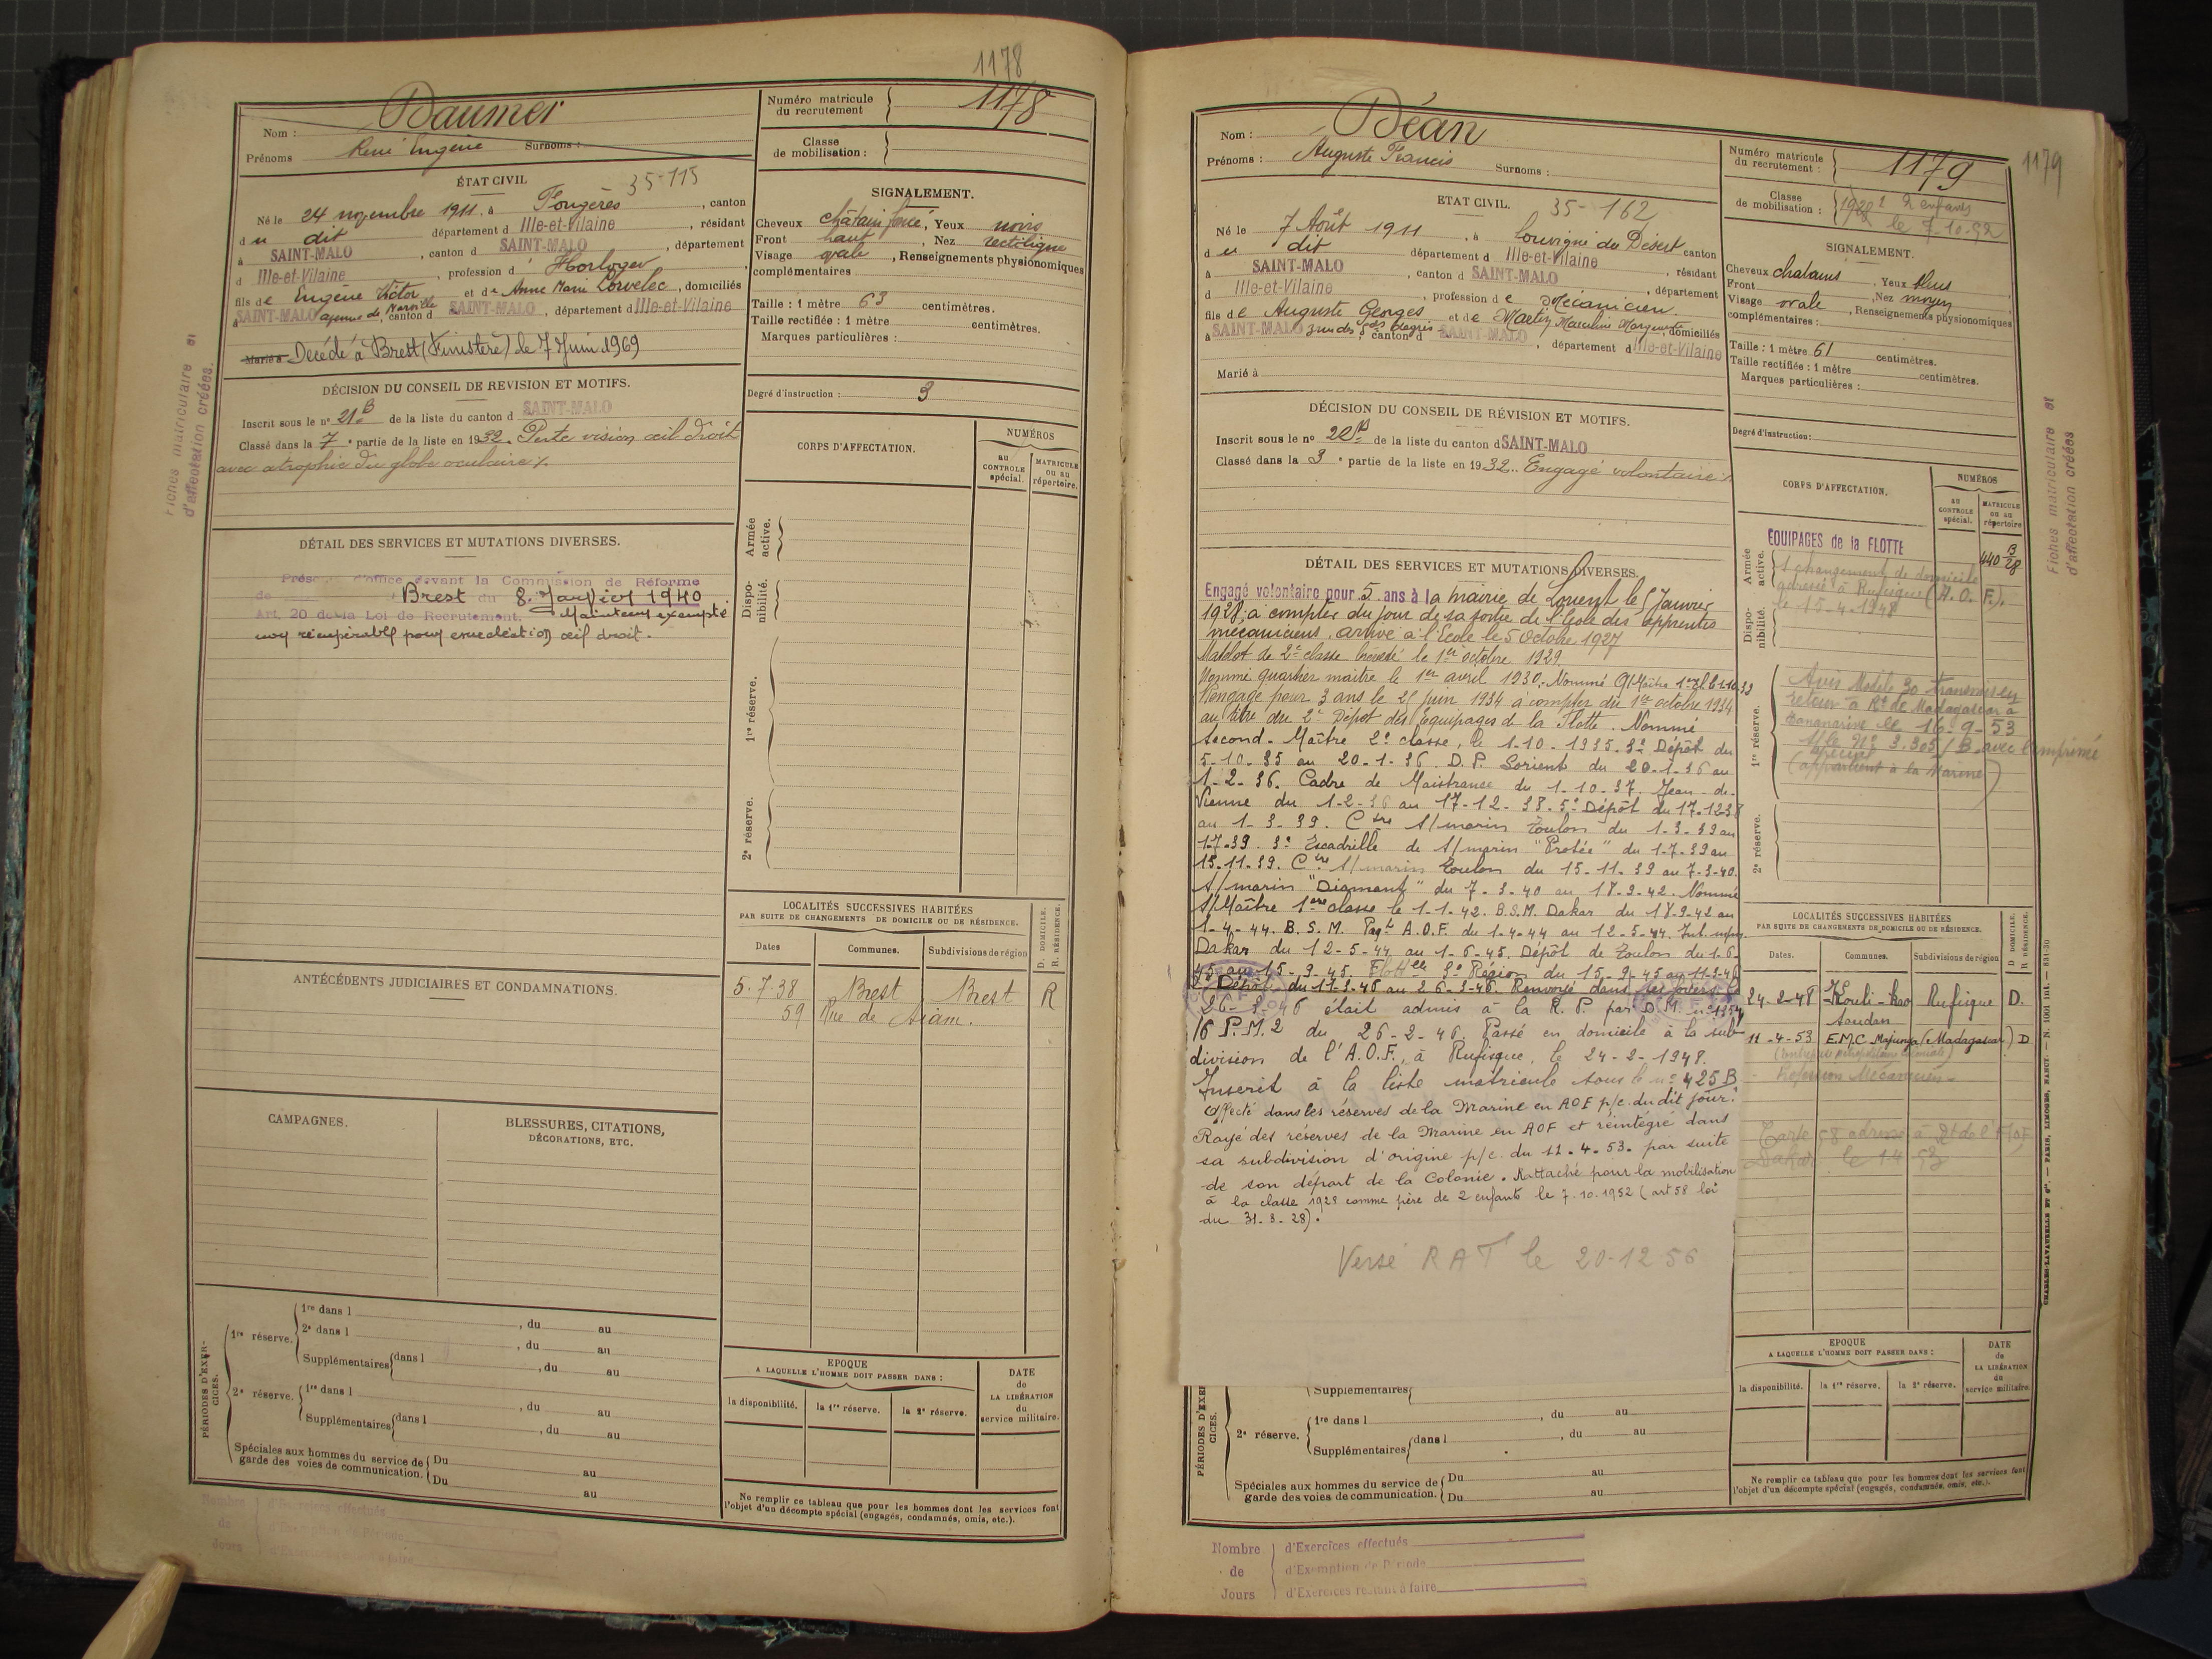 1178
Nom : Daumer
Prénoms René Eugène Surnoms :
Numéro matricule du recrutement 1178
Classe de mobilisation :
ÉTAT CIVIL 35-115
Né le 24 novembre 1911, à Fougères, canton
du dit département d Ille-et-Vilaine, résidant
à SAINT-MALO, canton d SAINT-MALO, département
d Ille-et-Vilaine, profession d' Horloger
fils de Eugène Victor et de Anne Marie Lorvelec, domiciliés
à SAINT-MALO, canton d SAINT-MALO, département d Ille-et-Vilaine
Marié à Décédé à Brest (Finistère) le 7 Juin 1969
SIGNALEMENT.
Cheveux châtain foncé, Yeux noirs
Front haut, Nez rectiligne
Visage ovale, Renseignements physionomiques
complémentaires
Taille : 1 mètre 63 centimètres.
Taille rectifiée : 1 mètre centimètres.
Marques particulières :
Degré d'instruction : 3
DÉCISION DU CONSEIL DE REVISION ET MOTIFS.
Inscrit sous le n° 21B de la liste du canton d SAINT-MALO
Classé dans la 7e partie de la liste en 1932. Perte vision œil droit
avec atrophie du globe oculaire
CORPS D'AFFECTATION.
NUMÉROS
au CONTROLE spécial.
MATRICULE ou au répertoire.
Armée active.
Disponibilité.
1re réserve.
2e réserve.
DÉTAIL DES SERVICES ET MUTATIONS DIVERSES.
d'office devant la Commission de Réforme
de Brest du 8 Janvier 1940
Art. 20 de la Loi de Recrutement. Maintenu exempté
non récupérable pour énucléation œil droit.
LOCALITÉS SUCCESSIVES HABITÉES
PAR SUITE DE CHANGEMENTS DE DOMICILE OU DE RÉSIDENCE.
D. DOMICILE. R. RÉSIDENCE.
Dates Communes. Subdivisions de région
5.7.38 Brest Brest R
59 Rue de Siam.
ANTÉCÉDENTS JUDICIAIRES ET CONDAMNATIONS.
CAMPAGNES.
BLESSURES, CITATIONS,
DÉCORATIONS, ETC.
PÉRIODES D'EXERCICES.
1re réserve. 1re dans l , du au
2e dans l , du au
Supplémentaires dans l , du au
2e réserve. 1re dans l , du au
Supplémentaires dans l , du au
Spéciales aux hommes du service de garde des voies de communication. Du au
Du au
EPOQUE
A LAQUELLE L'HOMME DOIT PASSER DANS :
la disponibilité. la 1re réserve. la 2e réserve.
DATE de LA LIBÉRATION du service militaire.
Ne remplir ce tableau que pour les hommes dont les services font
l'objet d'un décompte spécial (engagés, condamnés, omis, etc.).
Fiches matriculaire et
d'affectation créées.
Nombre de Jours
1179
Nom : Béan
Prénoms : Auguste Francis Surnoms :
Numéro matricule du recrutement : 1179
Classe de mobilisation : 2 enfants
le 7-10-52
ETAT CIVIL. 35-162
Né le 7 Août 1911, à Louvigné du Désert canton
du dit département d Ille-et-Vilaine
à SAINT-MALO, canton d SAINT-MALO, résidant
d Ille-et-Vilaine, profession de Mécanicien, département
fils de Auguste Georges et de Martin Marguerite domiciliés
à SAINT-MALO, canton d SAINT-MALO, département d Ille-et-Vilaine
Marié à
SIGNALEMENT.
Cheveux chatains, Yeux bleus
Front, Nez moyen
Visage ovale, Renseignements physionomiques
complémentaires :
Taille : 1 mètre 61 centimètres.
Taille rectifiée : 1 mètre centimètres.
Marques particulières :
Degré d'instruction :
DÉCISION DU CONSEIL DE RÉVISION ET MOTIFS.
Inscrit sous le n° 22B de la liste du canton d SAINT-MALO
Classé dans la 3e partie de la liste en 1932. Engagé volontaire
CORPS D'AFFECTATION.
NUMÉROS
au CONTROLE spécial.
MATRICULE ou au répertoire
Armée active.
EQUIPAGES de la FLOTTE 440 B/28
changement de domicile
adressé à Rufisque (A.O.F.).
le 15-4-1948
Disponibilité.
1re réserve.
Avis Modèle 30 transmis en
retour à Rt de Madagascar à
Tananarive le 16-9-53
s/le N° 3.305/B avec l'imprimé
spécial
(appartient à la Marine)
2e réserve.
DÉTAIL DES SERVICES ET MUTATIONS DIVERSES.
Engagé volontaire pour 5 ans à la mairie de Lorient le 5 Janvier
1928, à compter du jour de sa sortie de l'Ecole des apprentis
mécaniciens. arrivé à l'Ecole le 5 Octobre 1927
Matelot de 2e classe breveté le 1er octobre 1929
Nommé quartier maître le 1er avril 1930. Nommé
Rengagé pour 3 ans le 25 juin 1934 à compter du 1er octobre 1934
au titre du 2e Dépôt des équipages de la Flotte. Nommé
Second-Maître 2e classe, le 1-10-1935. 3e Dépôt du
5-10-35 au 20-1-36. D.P. Lorient du 20-1-36 au
1-2-36. Cadre de Maistrance du 1-10-37. Jean-de-
Vienne du 1-2-36 au 17-12-38. 5e Dépôt du 17-12-38
au 1-3-39. Ctre S/marin Toulon du 1-3-39 au
1-7-39. 3e Escadrille de S/marin "Protée" du 1-7-39 au
15-11-39. Ctre S/marin Toulon du 15-11-39 au 7-3-40.
S/marin "Diamant" du 7-3-40 au 18-9-42. Nommé
S/Maître 1ère classe le 1-1-42. B.S.M. Dakar du 18-9-42 au
1-4-44. B.S.M. A.O.F. du 1-4-44 au 12-5-44.
Dakar du 12-5-44 au 1-6-45. Dépôt de Toulon du 1-6-
45 au 15-9-45. Flottlle 3e Région du 15-9-45 au 11-3-46
Dépôt du 11-3-46 au 26-3-46. Renvoyé dans ses foyers le
26-3-46 était admis à la R.P. par D.M.
16 P.M.2 du 26-2-46. Passé en domicile à la sub-
division de l'A.O.F., à Rufisque, le 24-2-1948.
Inscrit à la liste matricule sous le n° 425 B
Affecté dans les réserves de la Marine en AOF p/c. du dit jour.
Rayé des réserves de la Marine en AOF et réintégré dans
sa subdivision d'origine p/c. du 11.4.53. par suite
de son départ de la Colonie. Rattaché pour la mobilisation
à la classe 1928 comme père de 2 enfants le 7.10.1952 (art 58 loi
du 31-3-28).
Versé RAT le 20-12 56
LOCALITÉS SUCCESSIVES HABITÉES
PAR SUITE DE CHANGEMENTS DE DOMICILE OU DE RÉSIDENCE.
D DOMICILE. R RÉSIDENCE.
Dates. Communes. Subdivisions de région
24-2-48 Rufisque D.
Soudan
11-4-53 E.M.C. Majunga (Madagascar) D
Profession Mécanicien
Carte 58 adressé à Rt de l'AOF
Dakar le
Supplémentaires
PÉRIODES D'EXERCICES.
2e réserve. 1re dans l , du au
Supplémentaires dans l , du au
Spéciales aux hommes du service de garde des voies de communication. Du au
Du au
EPOQUE
A LAQUELLE L'HOMME DOIT PASSER DANS :
la disponibilité. la 1re réserve. la 2e réserve.
DATE de LA LIBÉRATION du service militaire.
Ne remplir ce tableau que pour les hommes dont les services font
l'objet d'un décompte spécial (engagés, condamnés, omis, etc.).
Fiches matriculaire et
d'affectation créées
CHARLES-LAVAUZELLE ET Cie. — PARIS, LIMOGES, NANCY.
Nombre de Jours
d'Exercices effectués
d'Exemption de Période
d'Exercices restant à faire